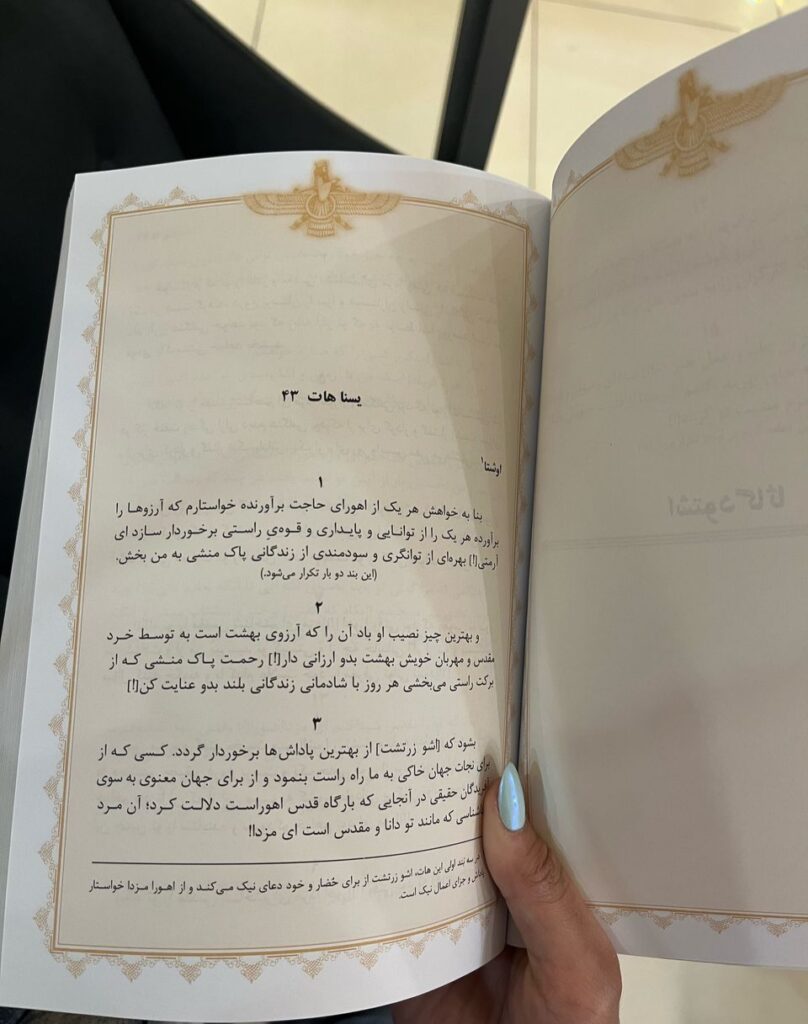 یسنا هات ۴۳
اوشتا۱
۱
بنا به خواهش هر یک از اهورای حاجت برآورنده خواستارم که آرزوها را
برآورده هر یک را از توانایی و پایداری و قوه‌ی راستی برخوردار سازد ای
آرمتی[!] بهره‌ای از توانگری و سودمندی از زندگانی پاک منشی به من بخش.
(این بند دو بار تکرار می‌شود.)
۲
و بهترین چیز نصیب او باد آن را که آرزوی بهشت است به توسط خرد
مقدس و مهربان خویش بهشت بدو ارزانی دار[!] رحمت پاک منشی که از
برکت راستی می‌بخشی هر روز با شادمانی زندگانی بلند بدو عنایت کن[!]
۳
بشود که [اشو زرتشت] از بهترین پاداش‌ها برخوردار گردد. کسی که از
برای نجات جهان خاکی به ما راه راست بنمود و از برای جهان معنوی به سوی
حقیقی در آنجایی که بارگاه قدس اهوراست دلالت کرد؛ آن مرد
که مانند تو دانا و مقدس است ای مزدا!
سه بند اولی این هات، اشو زرتشت از برای حُضار و خود دعای نیک می‌کند و از اهورا مزدا خواستار
و جزای اعمال نیک است.
اشتود گاثا